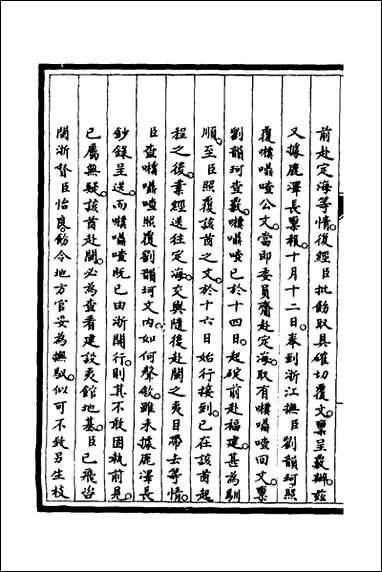 前赴定海等情。復經臣批飭取具確切覆文。稟呈覈辦。茲
又據鹿澤長稟報。十月十二日奉到浙江撫臣劉韻珂照
復嘆㗔喳公文。當即委員齎赴定海。取有嘆㗔喳回文。稟
劉韻珂查覈。嘆㗔喳已於十四日起碇前赴福建。甚為馴
順。至臣照覆該酋之文。於十六日始行接到。已在該酋起
程之後。業經送往定海。交與隨後赴閩之夷目帶去等情。
臣查嘆㗔喳照覆劉韻珂文內如何聲敘。雖未據鹿澤長
鈔錄呈送。而嘆㗔喳既已由浙開行。則其不敢固執前見。
已屬無疑。該酋赴閩。必為查看建設夷館地基。臣已飛咨
閩浙督臣怡良。飭令地方官妥為撫馭。似可不致另生枝